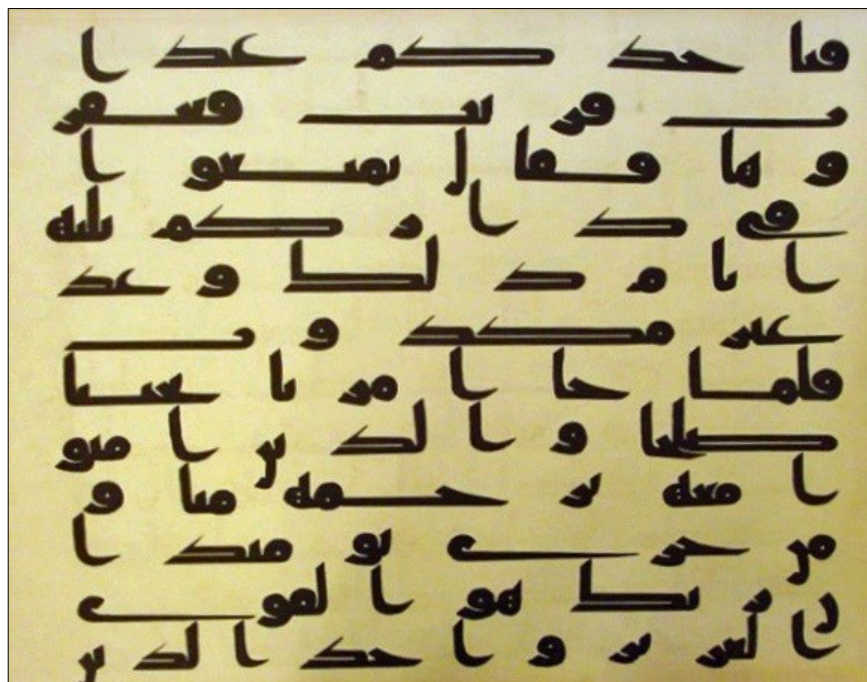 فياخذكم عذا
ب قريب فعقر
وها فقال تمتعوا
في داركم ثلثه
ايام ذلك وعد
غير مكذوب
فلما جا امرنا نجينا
صلحا والذين امنو
ا معه برحمه منا و
من خزي يومئذ ا
ن ربك هو القوي
العزيز واخذ الذين